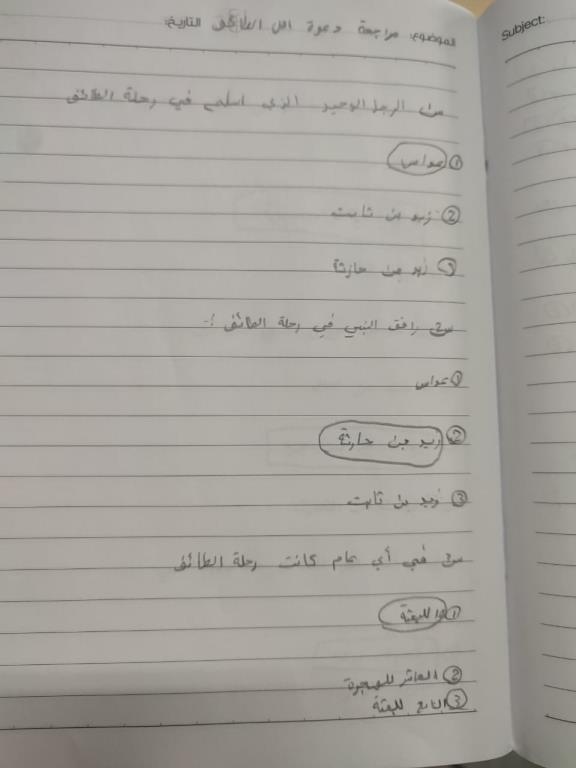 Subject:
الموضوع: مراجعة دعوة اهل الطائف التاريخ:
س١ الرجل الوحيد الذي اسلم في رحلة الطائف
① عداس
② زيد بن ثابت
③ زيد بن حارثة
س٢ رافق النبي في رحلة الطائف :-
① عداس
② زيد بن حارثة
③ زيد بن ثابت
س٣ في أي عام كانت رحلة الطائف
① للبعثة
② العاشر للهجرة
③ للبعثة